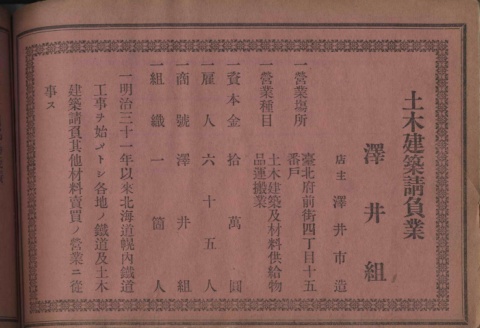 土木建築請負業
澤井組
店主 澤井市造
一營業塲所 臺北府前街四丁目十五番戶
一營業種目 土木建築及材料供給物品運搬業
一資本金拾萬圓
一雇人六十五人
一商號澤井組
一組織一箇人
一明治三十一年以來北海道幌內鐵道
工事ヲ始メトシ各地ノ鐵道及土木
建築請負其他材料賣買ノ營業ニ從
事ス